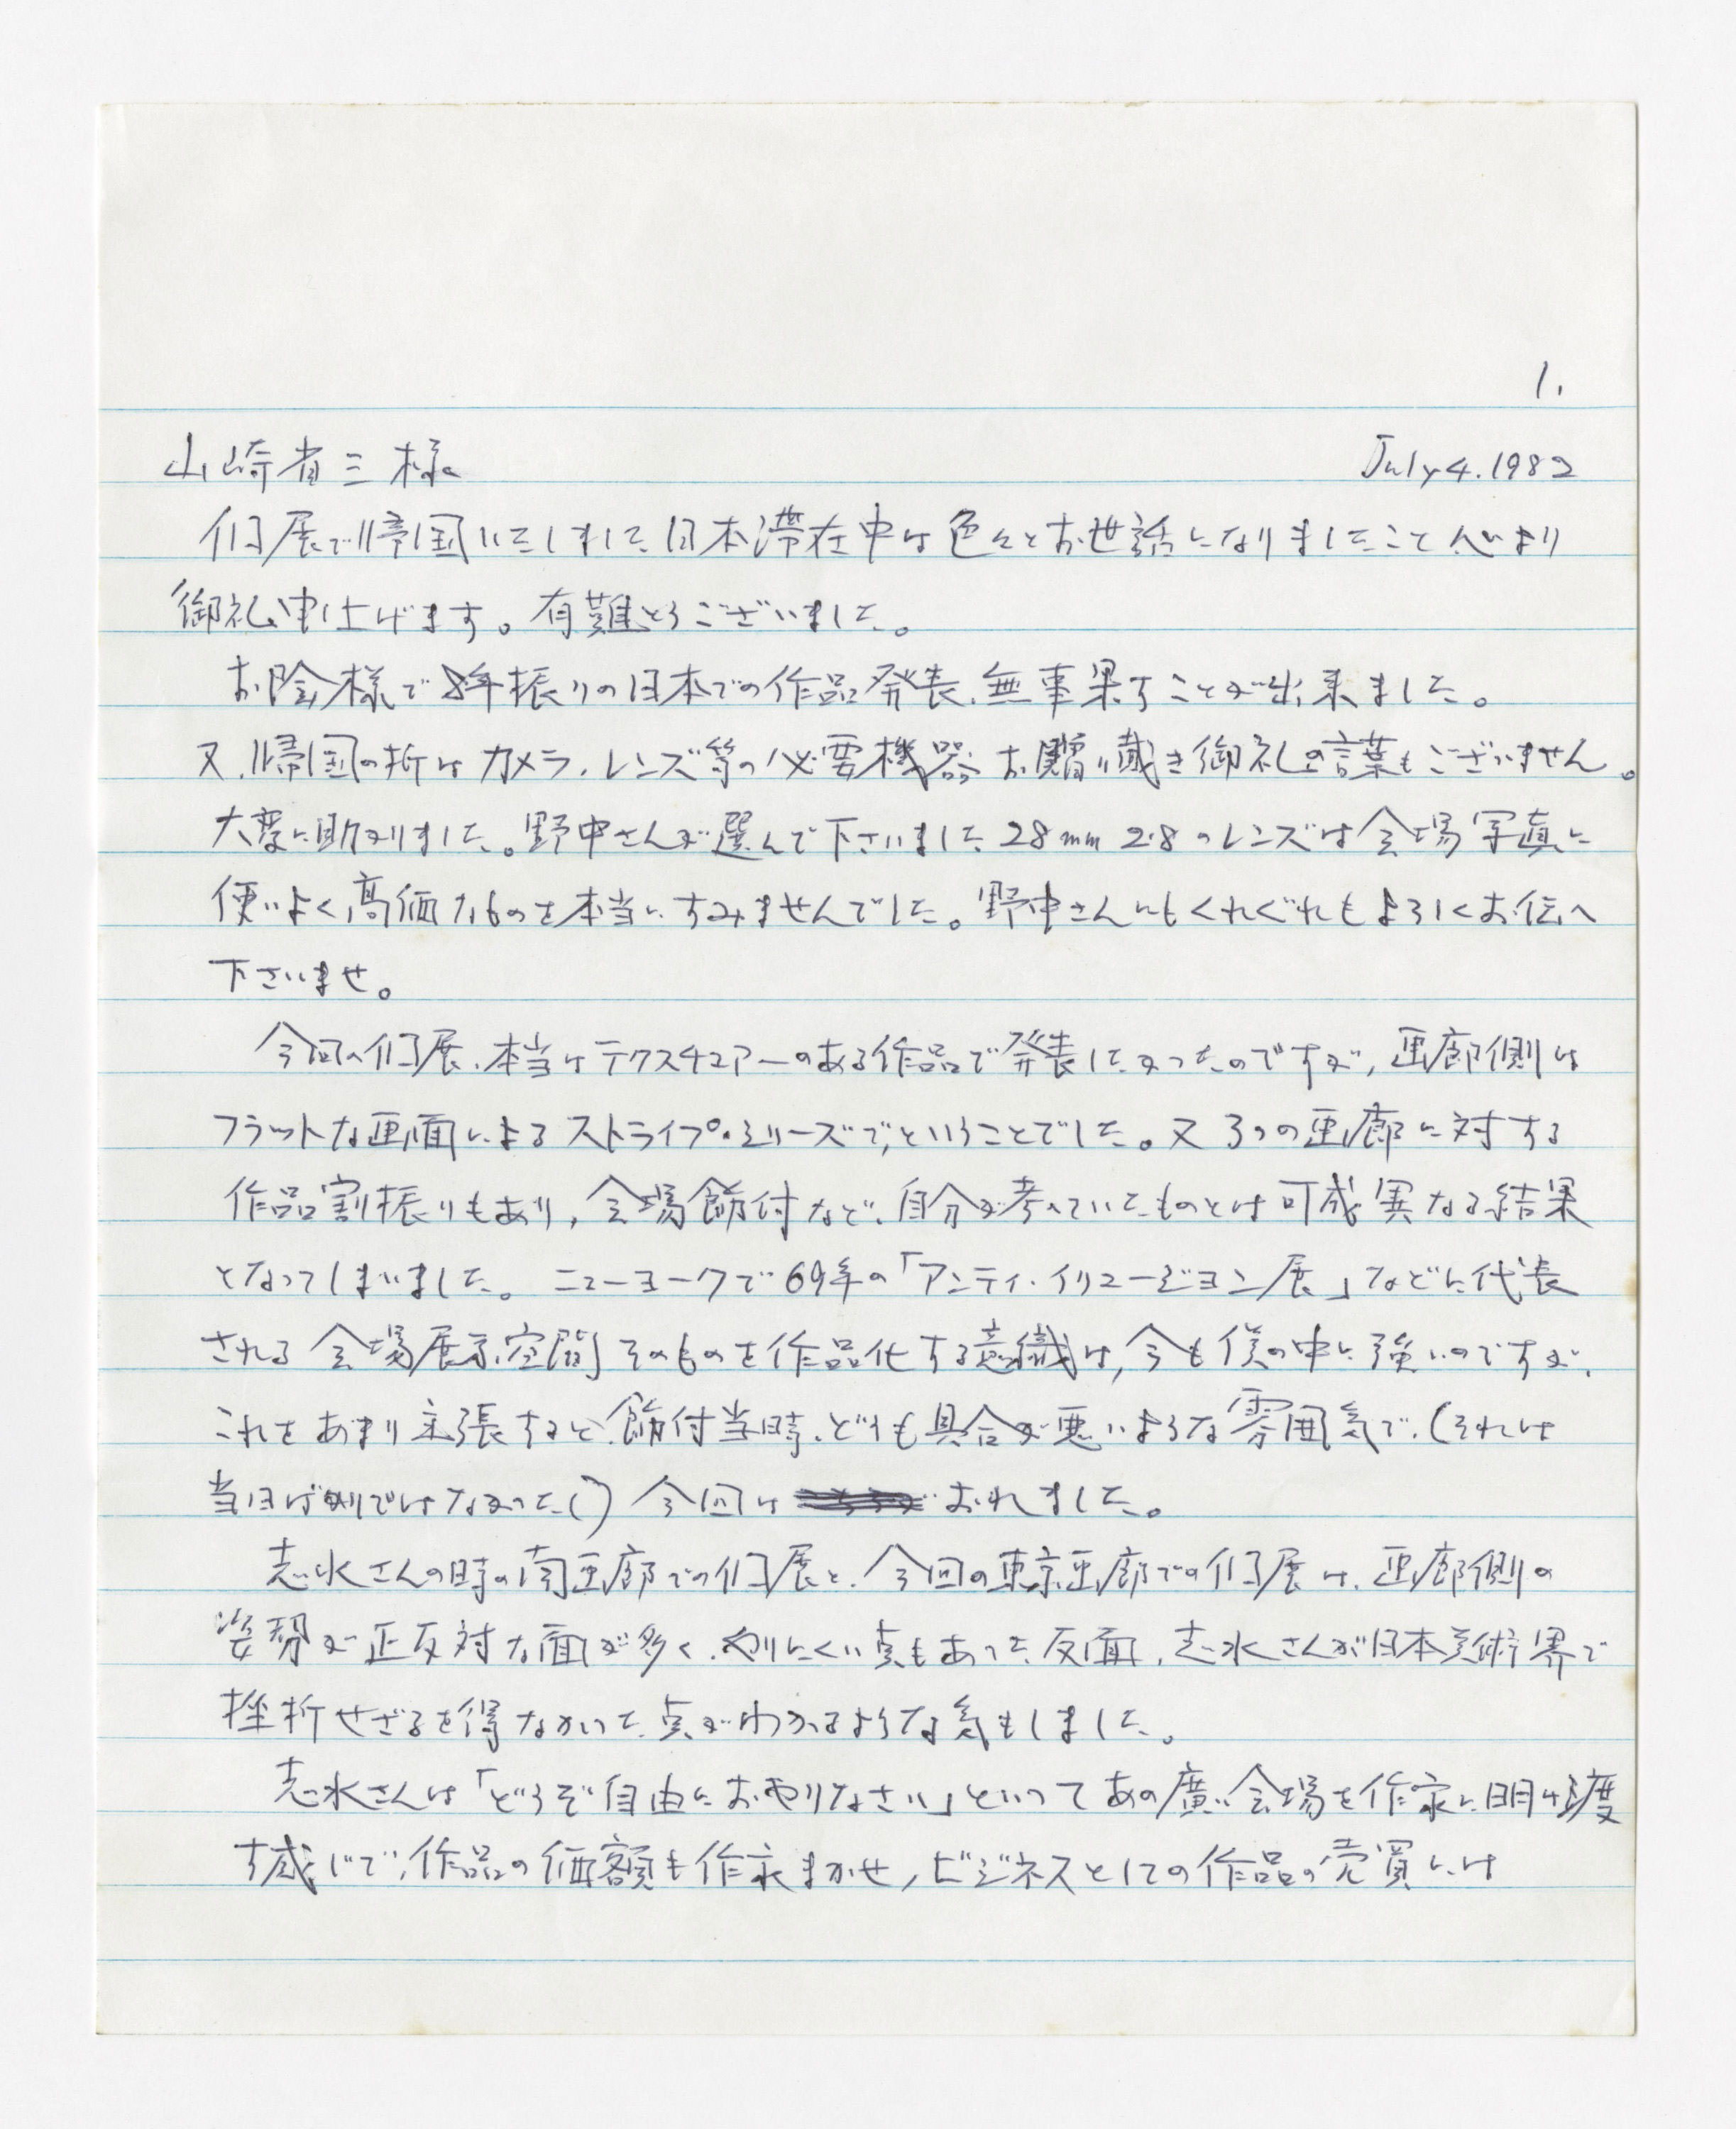 1.
山崎省三様 July 4. 1982
個展で帰国いたしました日本滞在中は色々とお世話になりましたこと心より
御礼申上げます。有難とうございました。
お陰様で8年振りの日本での作品発表、無事果すことが出来ました。
又、帰国の折はカメラ、レンズ等の必要機器お贈り戴き御礼の言葉もございません。
大変に助かりました。野中さんが選んで下さいました28mm 2.8のレンズは会場写真に
使いよく高価なものを本当にすみませんでした。野中さんにもくれぐれもよろしくお伝へ
下さいませ。
今回の個展、本当はテクスチュアーのある作品で発表したかったのですが、画廊側は
フラットな画面によるストライプ・シリーズで、ということでした。又3つの画廊に対する
作品割振りもあり、会場飾付など、自分が考へていたものとは可成異なる結果
となってしまいました。ニューヨークで69年の「アンティ・イリュージョン展」などに代表
される会場展示空間そのものを作品化する意識は、今も僕の中に強いのですが、
これをあまり主張すると、飾付当時、どうも具合が悪いような雰囲気で、(それは
当日ばかりではなかった()今回は おれました。
志水さんの時の南画廊での個展と、今回の東京画廊での個展は、画廊側の
姿勢が正反対な面が多く、やりにくい点もあった反面、志水さんが日本美術界で
挫折せざるを得なかった点がわかるような気もしました。
志水さんは「どうぞ自由におやりなさい」といってあの廣い会場を作家に明け渡
す感じで、作品の価額も作家まかせ、ビジネスとしての作品の売買には